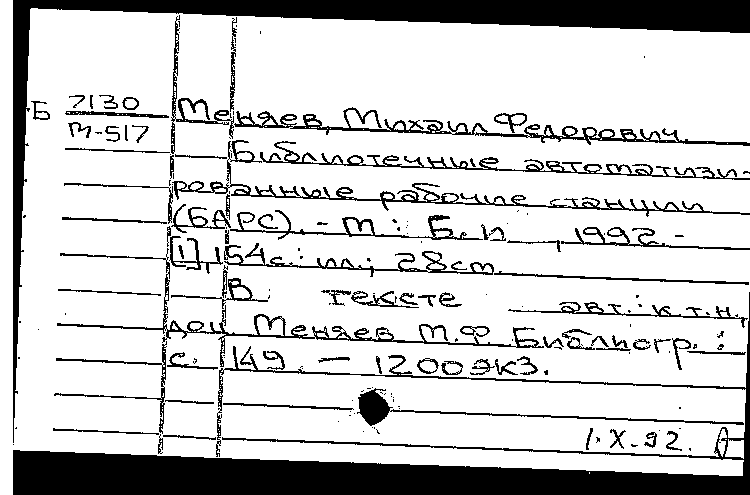 Б 7130
М-517
Меняев, Михаил Федорович.
Библиотечные автоматизи-
рованные рабочие станции
(БАРС). - М : Б. и , 1992. -
[1], 154 с. : ил.; 28 см.
В тексте авт.: к.т.н.,
доц. Меняев М.Ф. Библиогр. :
с. 149. — 1200 экз.
1.X.92.